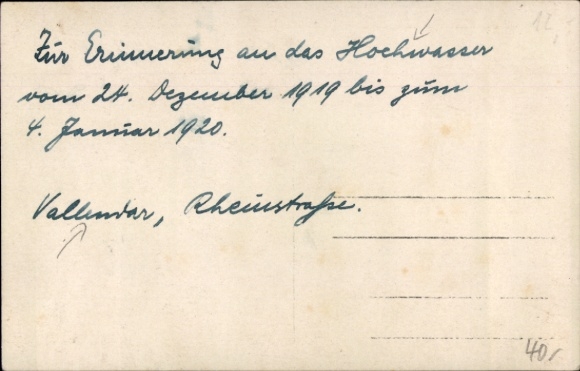 12,
Zur Erinnerung an das Hochwasser
vom 24. Dezember 1919 bis zum
4. Januar 1920.
Vallendar, Rheinstraße.
40,